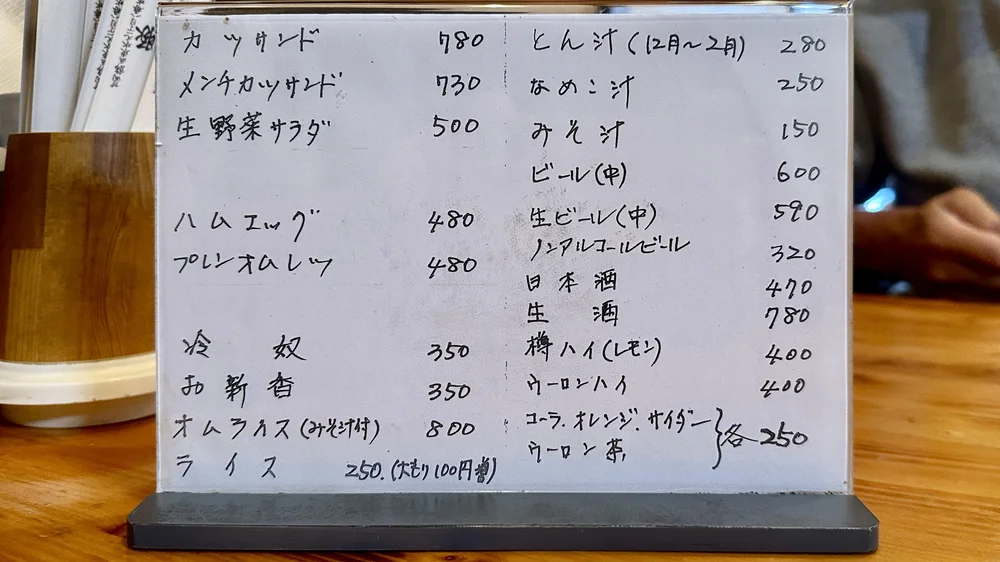 カツサンド 780
メンチカツサンド 730
生野菜サラダ 500
ハムエッグ 480
プレンオムレツ 480
冷 奴 350
お新香 350
オムライス(みそ汁付) 800
ライス 250.(大もり100円増)
とん汁(12月〜2月) 280
なめこ汁 250
みそ汁 150
ビール(中) 600
生ビール(中) 590
ノンアルコールビール 320
日本酒 470
生 酒 780
樽ハイ(レモン) 400
ウーロンハイ 400
コーラ.オレンジ.サイダー
ウーロン茶, }各250